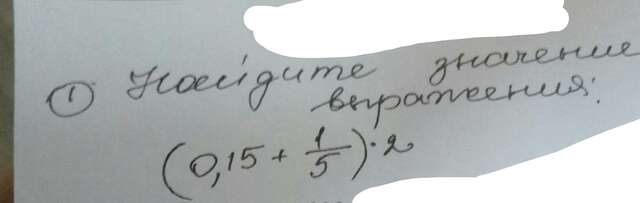 ① Найдите значение
выражения:
(0,15 + 1/5) · 2